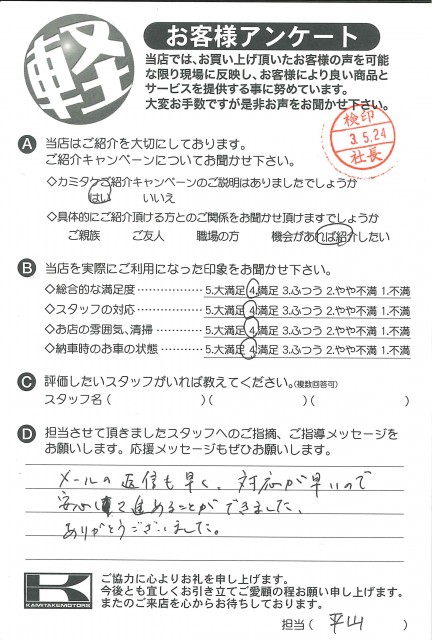 軽
お客様アンケート
当店では、お買い上げ頂いたお客様の声を可能
な限り現場に反映し、お客様により良い商品と
サービスを提供する事に努めています。
大変お手数ですが是非お声をお聞かせ下さい。
検印
3.5.24
社長
A 当店はご紹介を大切にしております。
ご紹介キャンペーンについてお聞かせ下さい。
◇カミタケご紹介キャンペーンのご説明はありましたでしょうか
はい いいえ
◇具体的にご紹介頂ける方とのご関係をお聞かせ頂けますでしょうか
ご親族 ご友人 職場の方 機会があれば紹介したい
B 当店を実際にご利用になった印象をお聞かせ下さい。
◇総合的な満足度 ‥‥‥‥‥‥ 5.大満足 4.満足 3.ふつう 2.やや不満 1.不満
◇スタッフの対応 ‥‥‥‥‥‥ 5.大満足 4.満足 3.ふつう 2.やや不満 1.不満
◇お店の雰囲気、清掃 ‥‥‥‥ 5.大満足 4.満足 3.ふつう 2.やや不満 1.不満
◇納車時のお車の状態 ‥‥‥‥ 5.大満足 4.満足 3.ふつう 2.やや不満 1.不満
C 評価したいスタッフがいれば教えてください。(複数回答可)
スタッフ名 ( )( )( )
D 担当させて頂きましたスタッフへのご指摘、ご指導メッセージを
お願いします。応援メッセージもぜひお願いします。
メールの返信も早く、対応が早いので
安心して進めることができました。
ありがとうございました。
K
KAMITAKEMOTORS
ご協力に心よりお礼を申し上げます。
今後とも宜しくお引き立てご愛顧の程お願い申し上げます。
またのご来店を心からお待ちしております。
担当 ( 平山 )